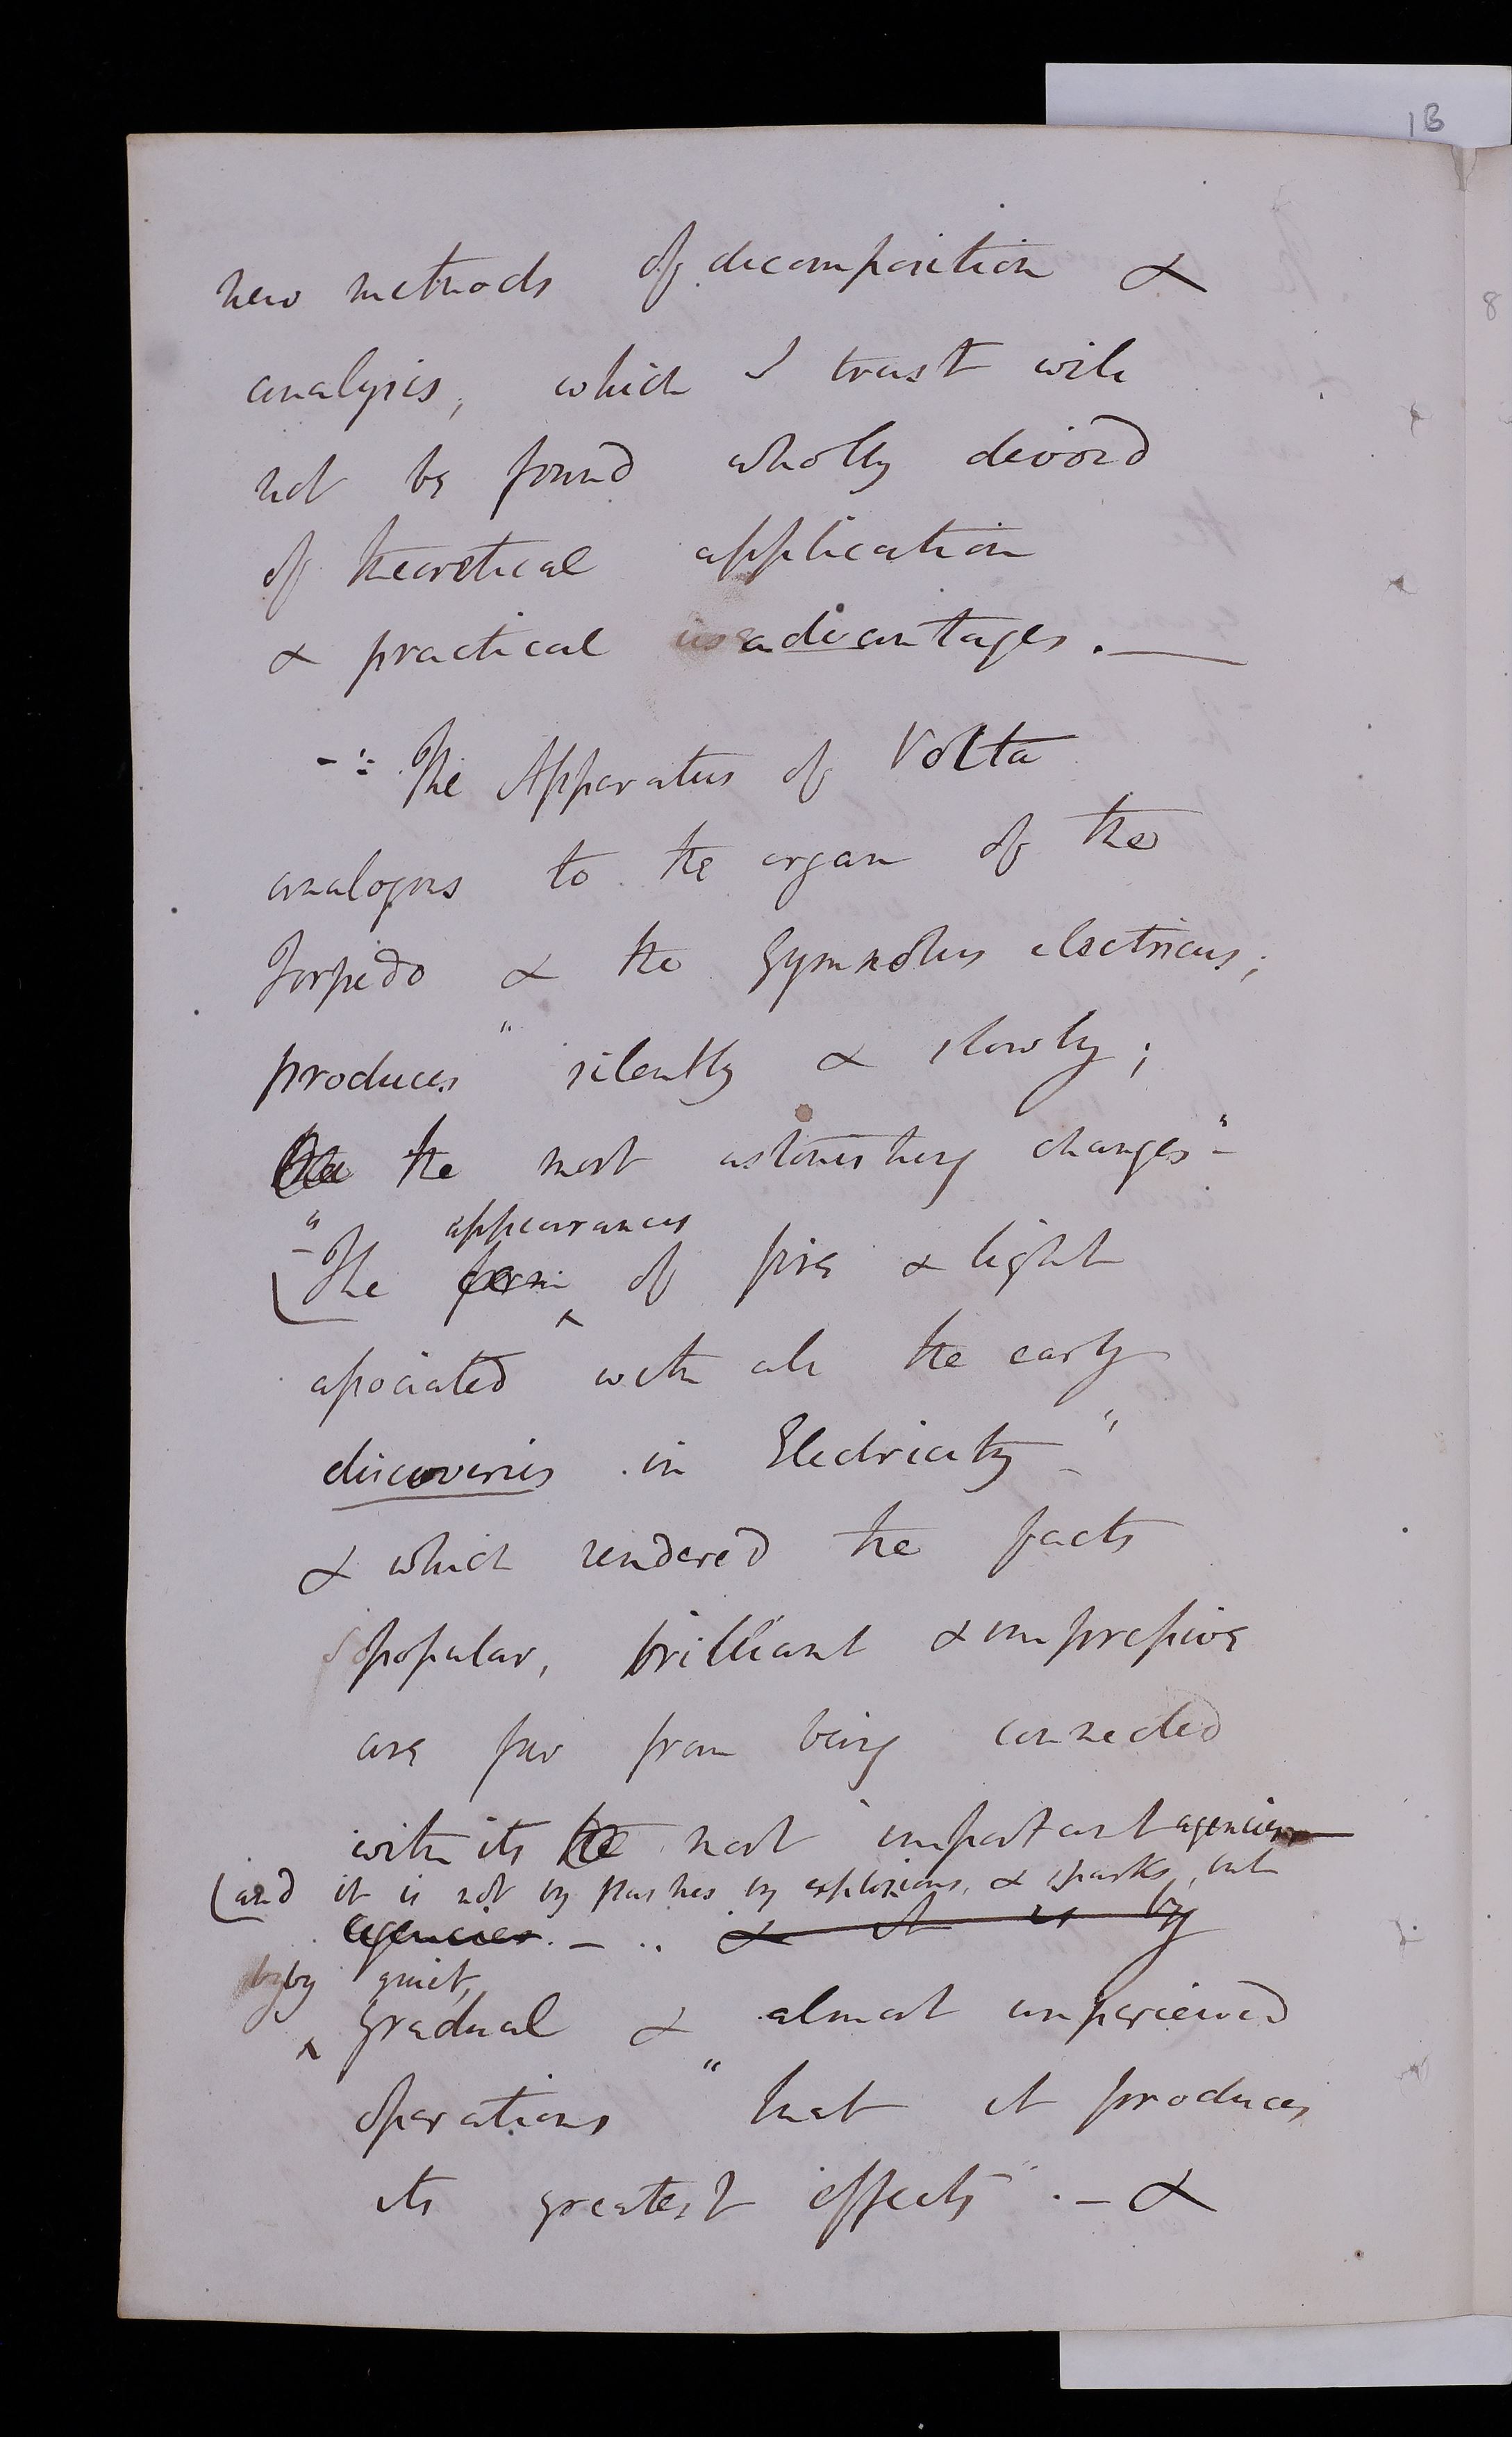 1B
8
new methods of decomposition &
analysis, which I trust will
not be found wholly devoid
of theoretical application
& practical advantages.
The Apparatus of Volta
analogous to the organ of the
Torpedo & the Gymnotus electricus;
produces "silently & slowly;
the most astonishing changes"-
appearances
"The form of fire & light
associated with all the early
discoveries in Electricity"
& which rendered the facts
so popular, brilliant & impressive
are far from being connected
with its the most important agencies
(and it is not by flashes by explosions, & sparks, but
agencies. - .. & it is by
by by quiet,
gradual & almost unperceived
operations "that it produces
its greatest effects". - &